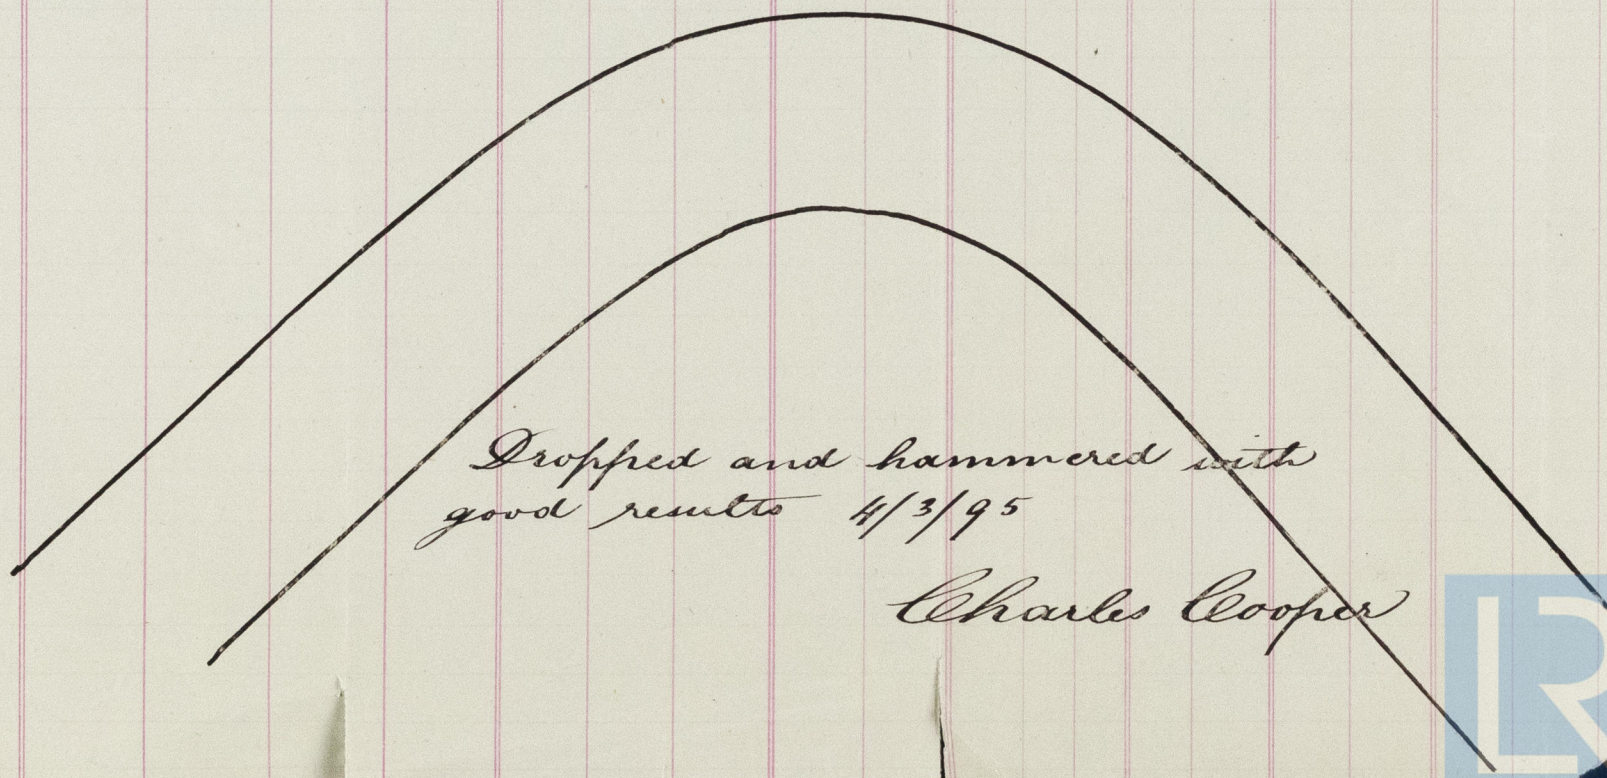 Dropped and hammered with
good results 4/3/95
Charles Cooper
LR